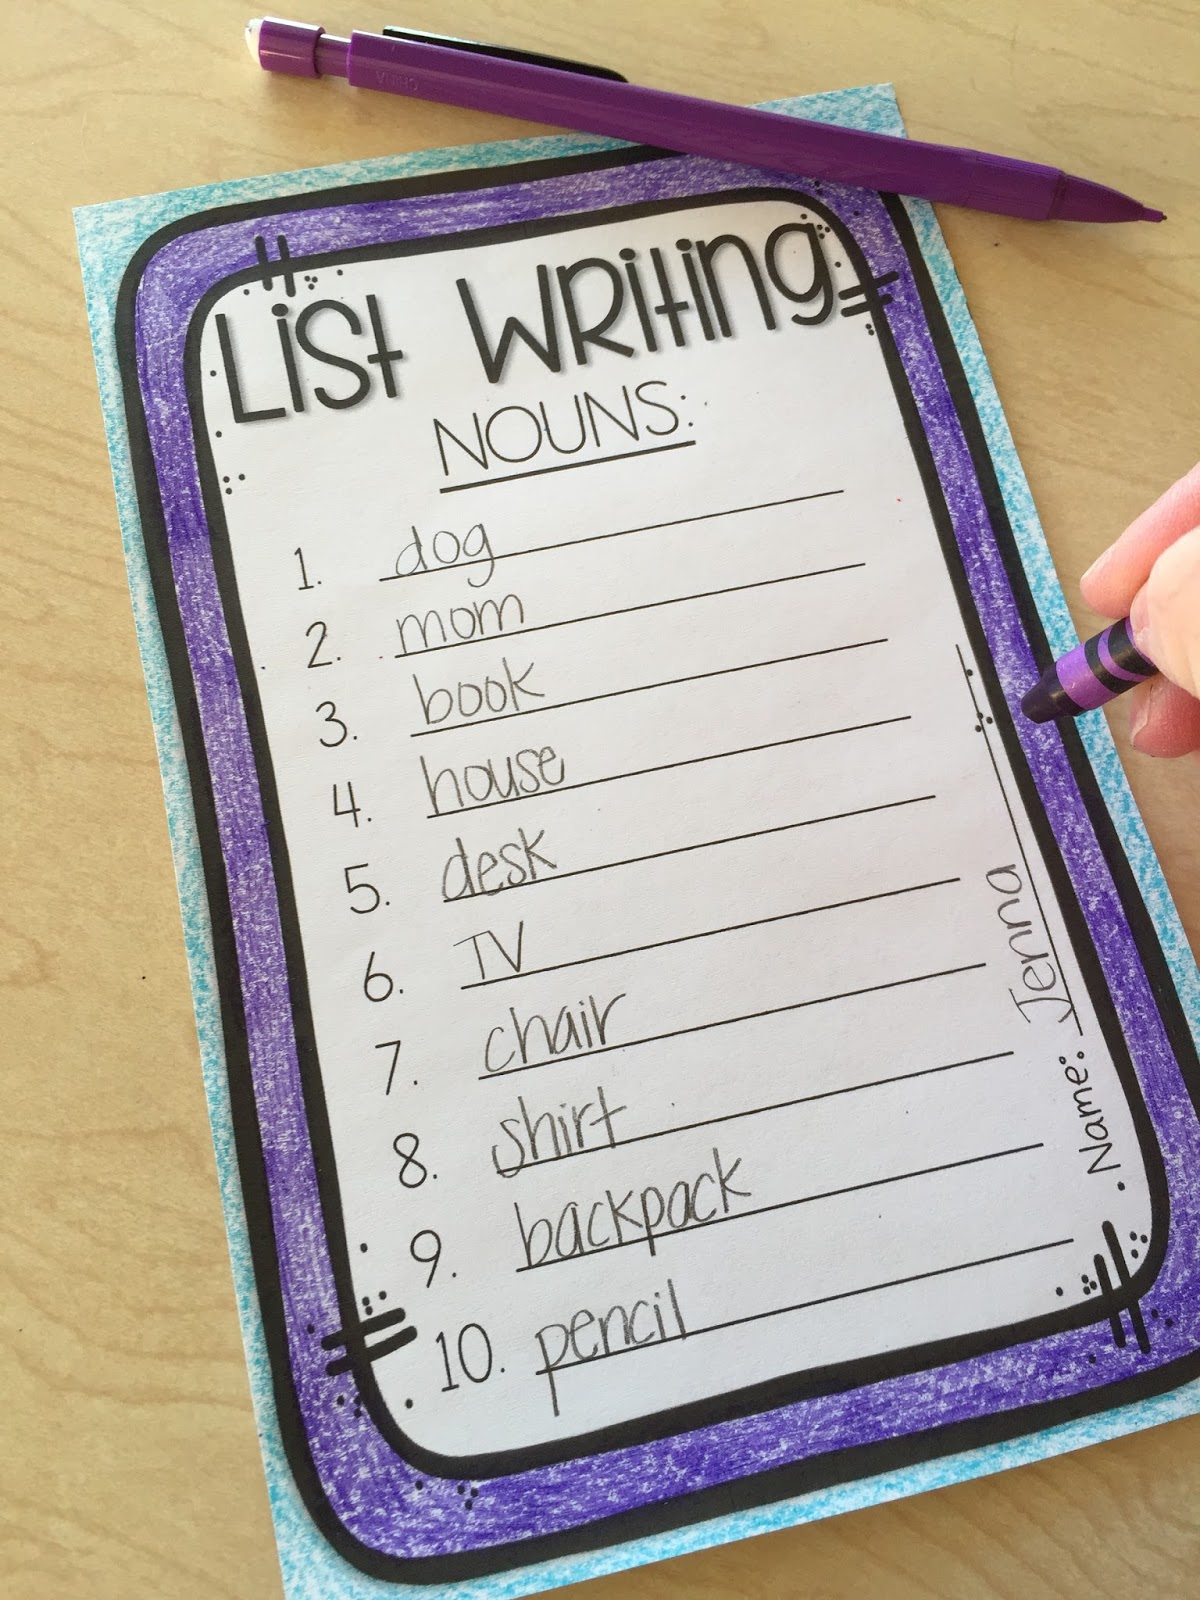 List Writing
NOUNS:
1. dog
2. mom
3. book
4. house
5. desk
6. TV
7. chair
8. shirt
9. backpack
10. pencil
Name: Jenna
CHINA